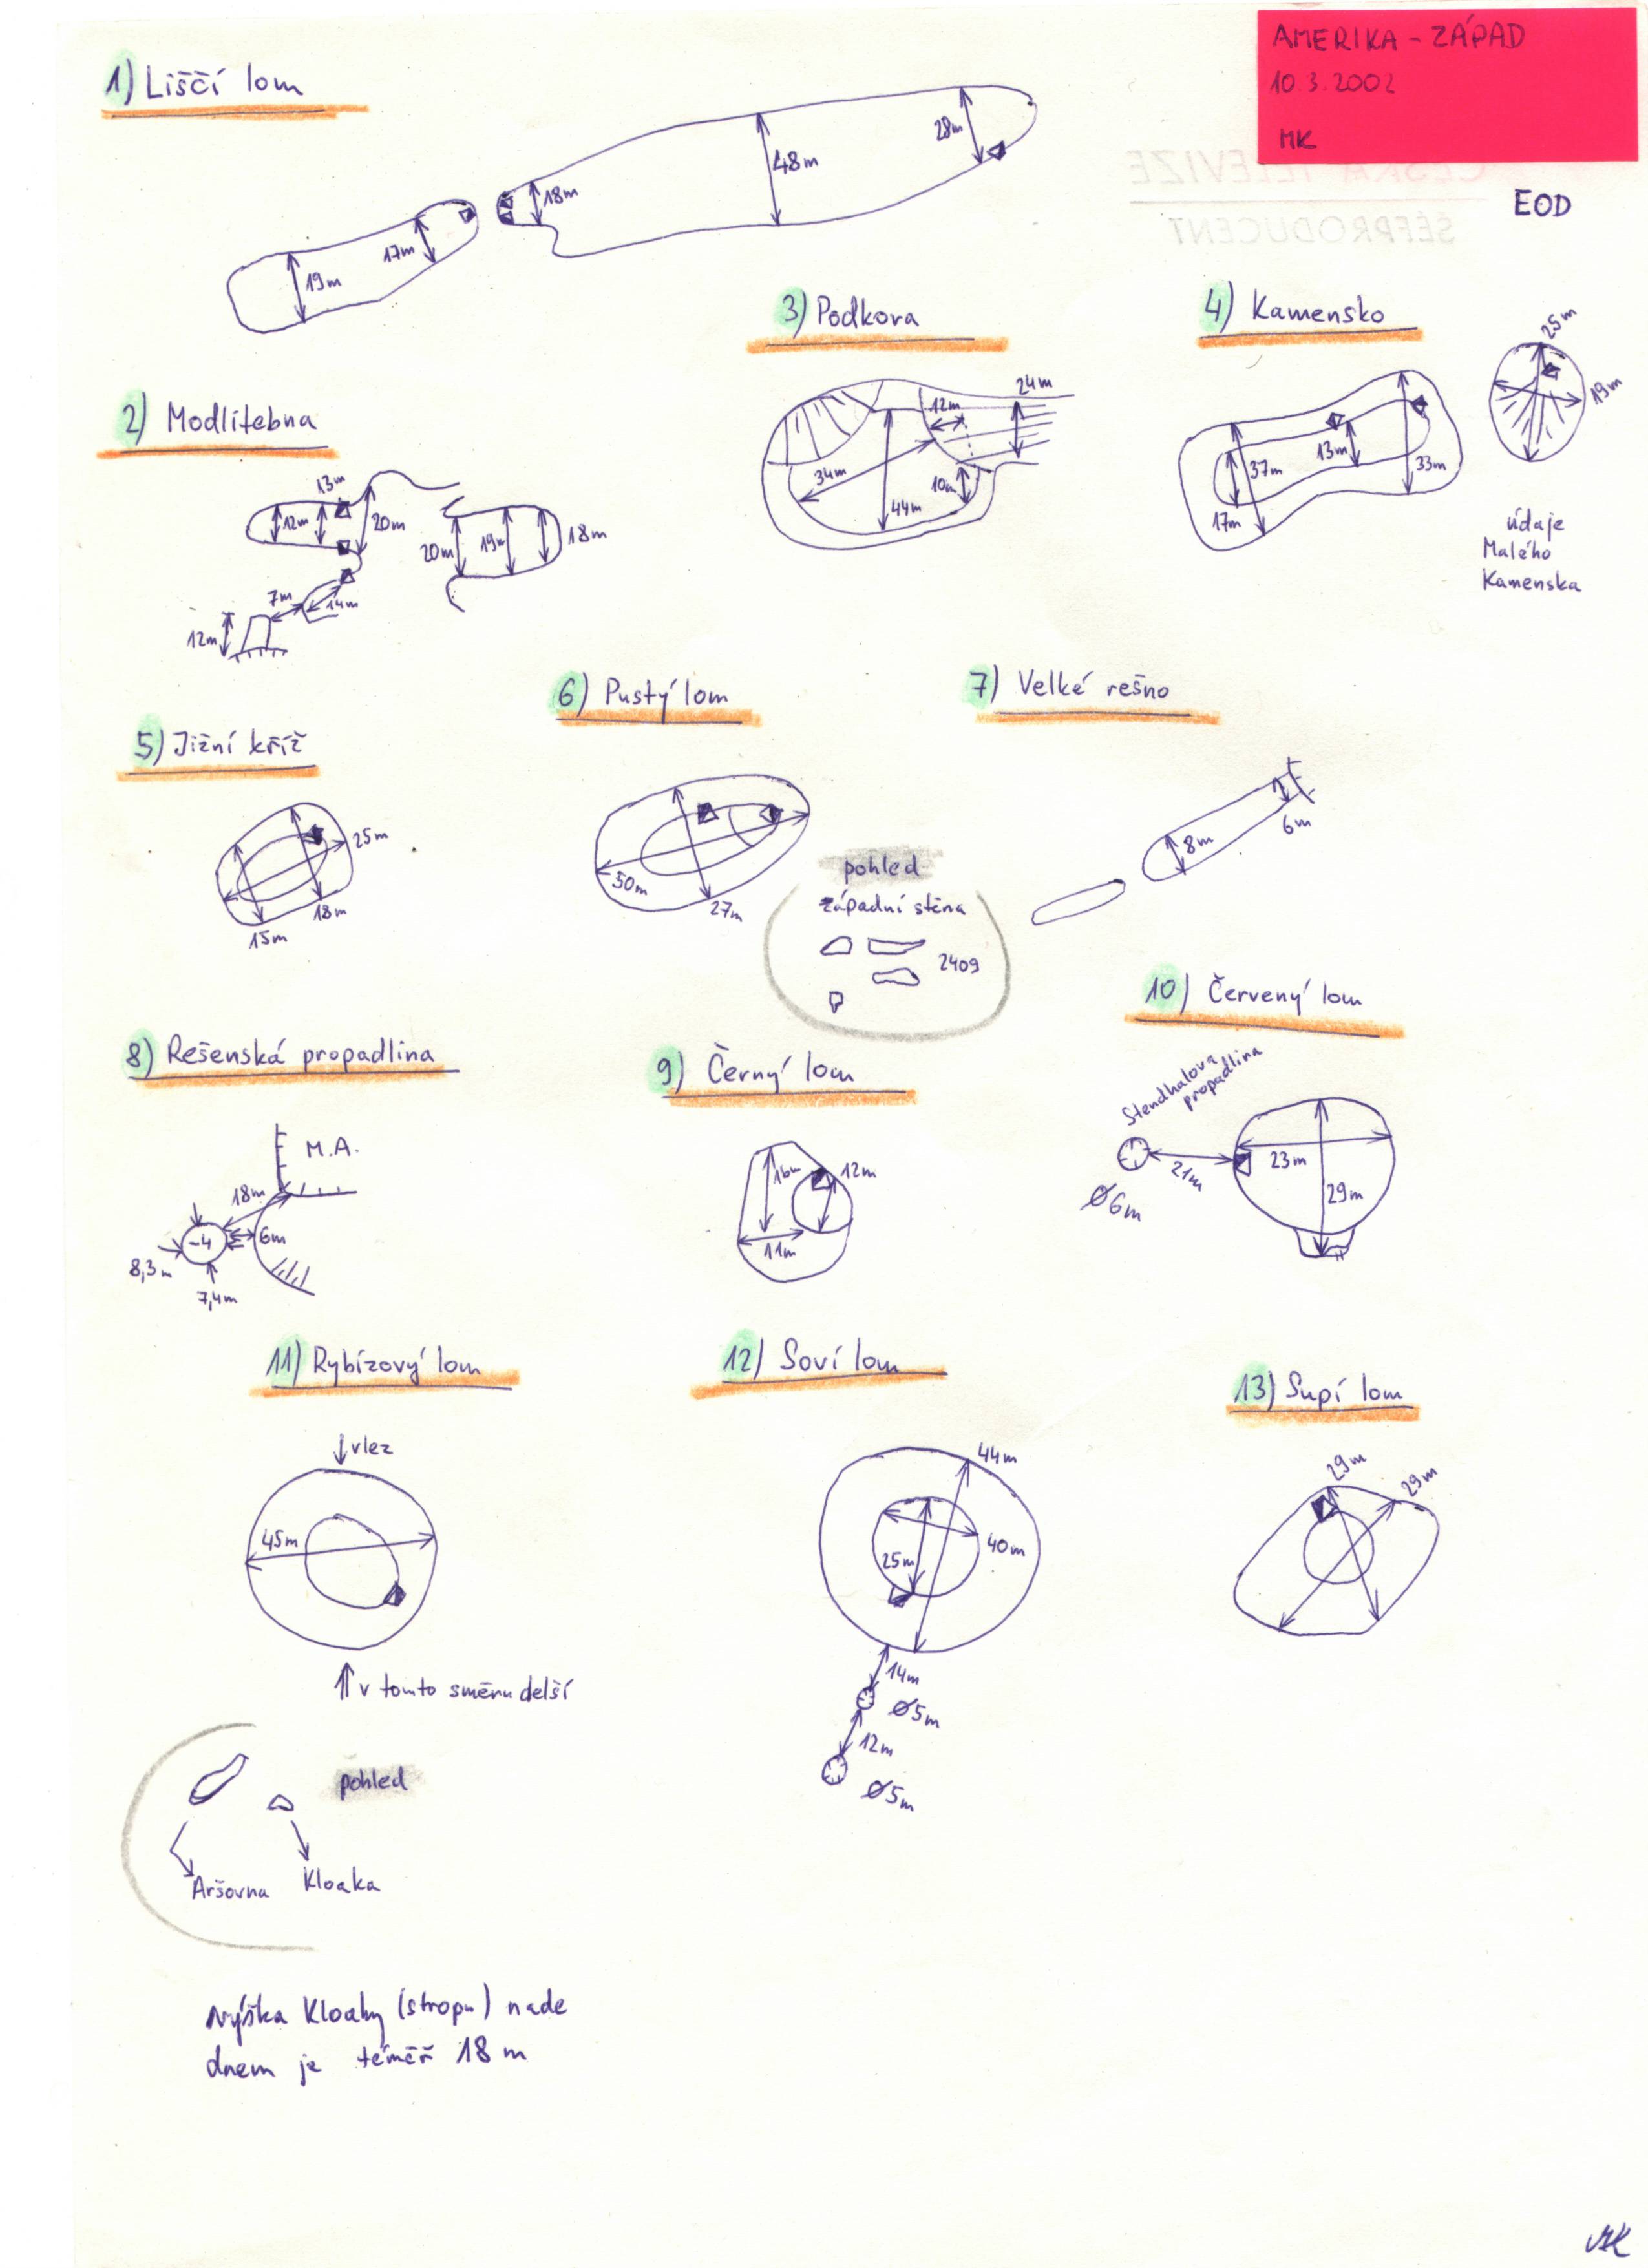 AMERIKA - ZÁPAD
10.3.2002
MK
ČESKÁ TELEVIZE
ŠÉFPRODUCENT
EOD
1) Liščí lom
28m
48m
18m
17m
19m
3) Podkova
24m
12m
34m
10m
44m
4) Kamensko
25m
19m
37m
13m
33m
17m
údaje
Malého
Kamenska
2) Modlitebna
13m
12m
20m
20m
19m
18m
7m
14m
12m
5) Jižní kříž
25m
18m
15m
6) Pustý lom
50m
27m
pohled
západní stěna
2409
7) Velké rešno
8m
6m
8) Rešenská propadlina
M.A.
18m
-4
6m
8,3m
7,4m
9) Černý lom
16m
12m
11m
10) Červený lom
Stendhalova
propadlina
23m
21m
29m
Ø6m
11) Rybízový lom
vlez
45m
v tomto směru delší
12) Soví lom
44m
40m
25m
14m
Ø5m
12m
Ø5m
13) Supí lom
29m
29m
pohled
Aršovna
Kloaka
výška Kloaky (stropu) nade
dnem je téměř 18 m
MK